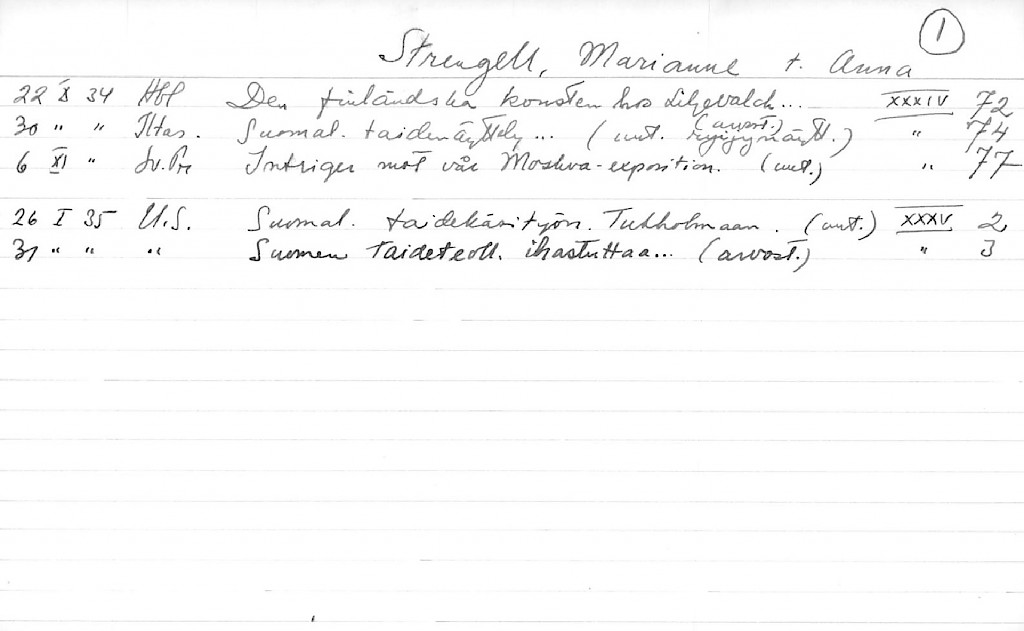 1
Strengell, Marianne t. Anna
22 X 34 Hbl Den finländska konsten hos Liljevalch... XXXIV 72
(arvost.)
30 " " Iltas. Suomal. taidenäyttely... (uut. ryijynäytt.) " 74
6 XI " Sv.Pr Intriger mot vår Moskva-exposition. (uut.) " 77
26 I 35 U.S. Suomal. taidekäsityön. Tukholmaan. (uut.) XXXV 2
31 " " " Suomen taideteoll. ihastuttaa... (arvost.) " 3